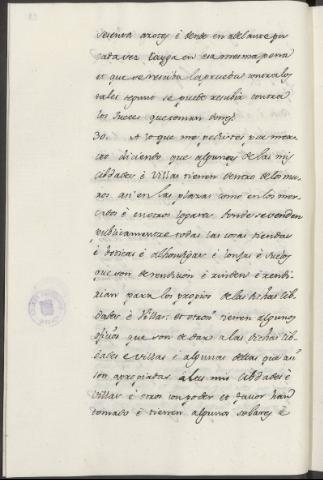 sesenta azotes é dende en adelante por
cada vez caya en esa mesma pena
et que se resciba la prueba contra los
tales segunt se puede rescibir contra
los Jueces que toman dones
30. A lo que me pedistes por mer-
ced diciendo que algunos de las mis
cibdades é villas tienen dentro de los mu-
ros asi en las plazas como en los mer-
cados é en otros logares donde se venden
publicamente todas las cosas tiendas
é boticas é alhondigas é lonjas é suelos
que son de rendicion é rinden é rendi-
rian para los propios de las dichas cib-
dades é villas: et otrosi tienen algunos
oficios que son dados a las dichas cib-
dades é villas é algunas dellas que assi
son apropiadas a las mis cibdades é
villas é otros con poder et favor han
tomado é tienen algunos solares é